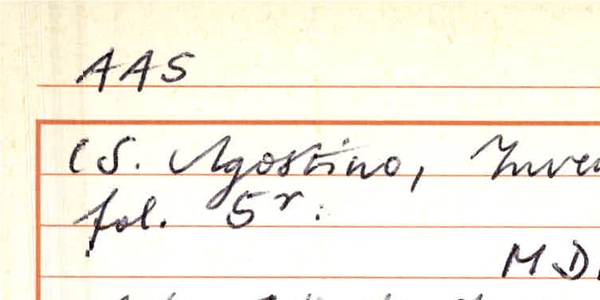 AAS
(S. Agostino, Inve
fol. 5r:
M.D.